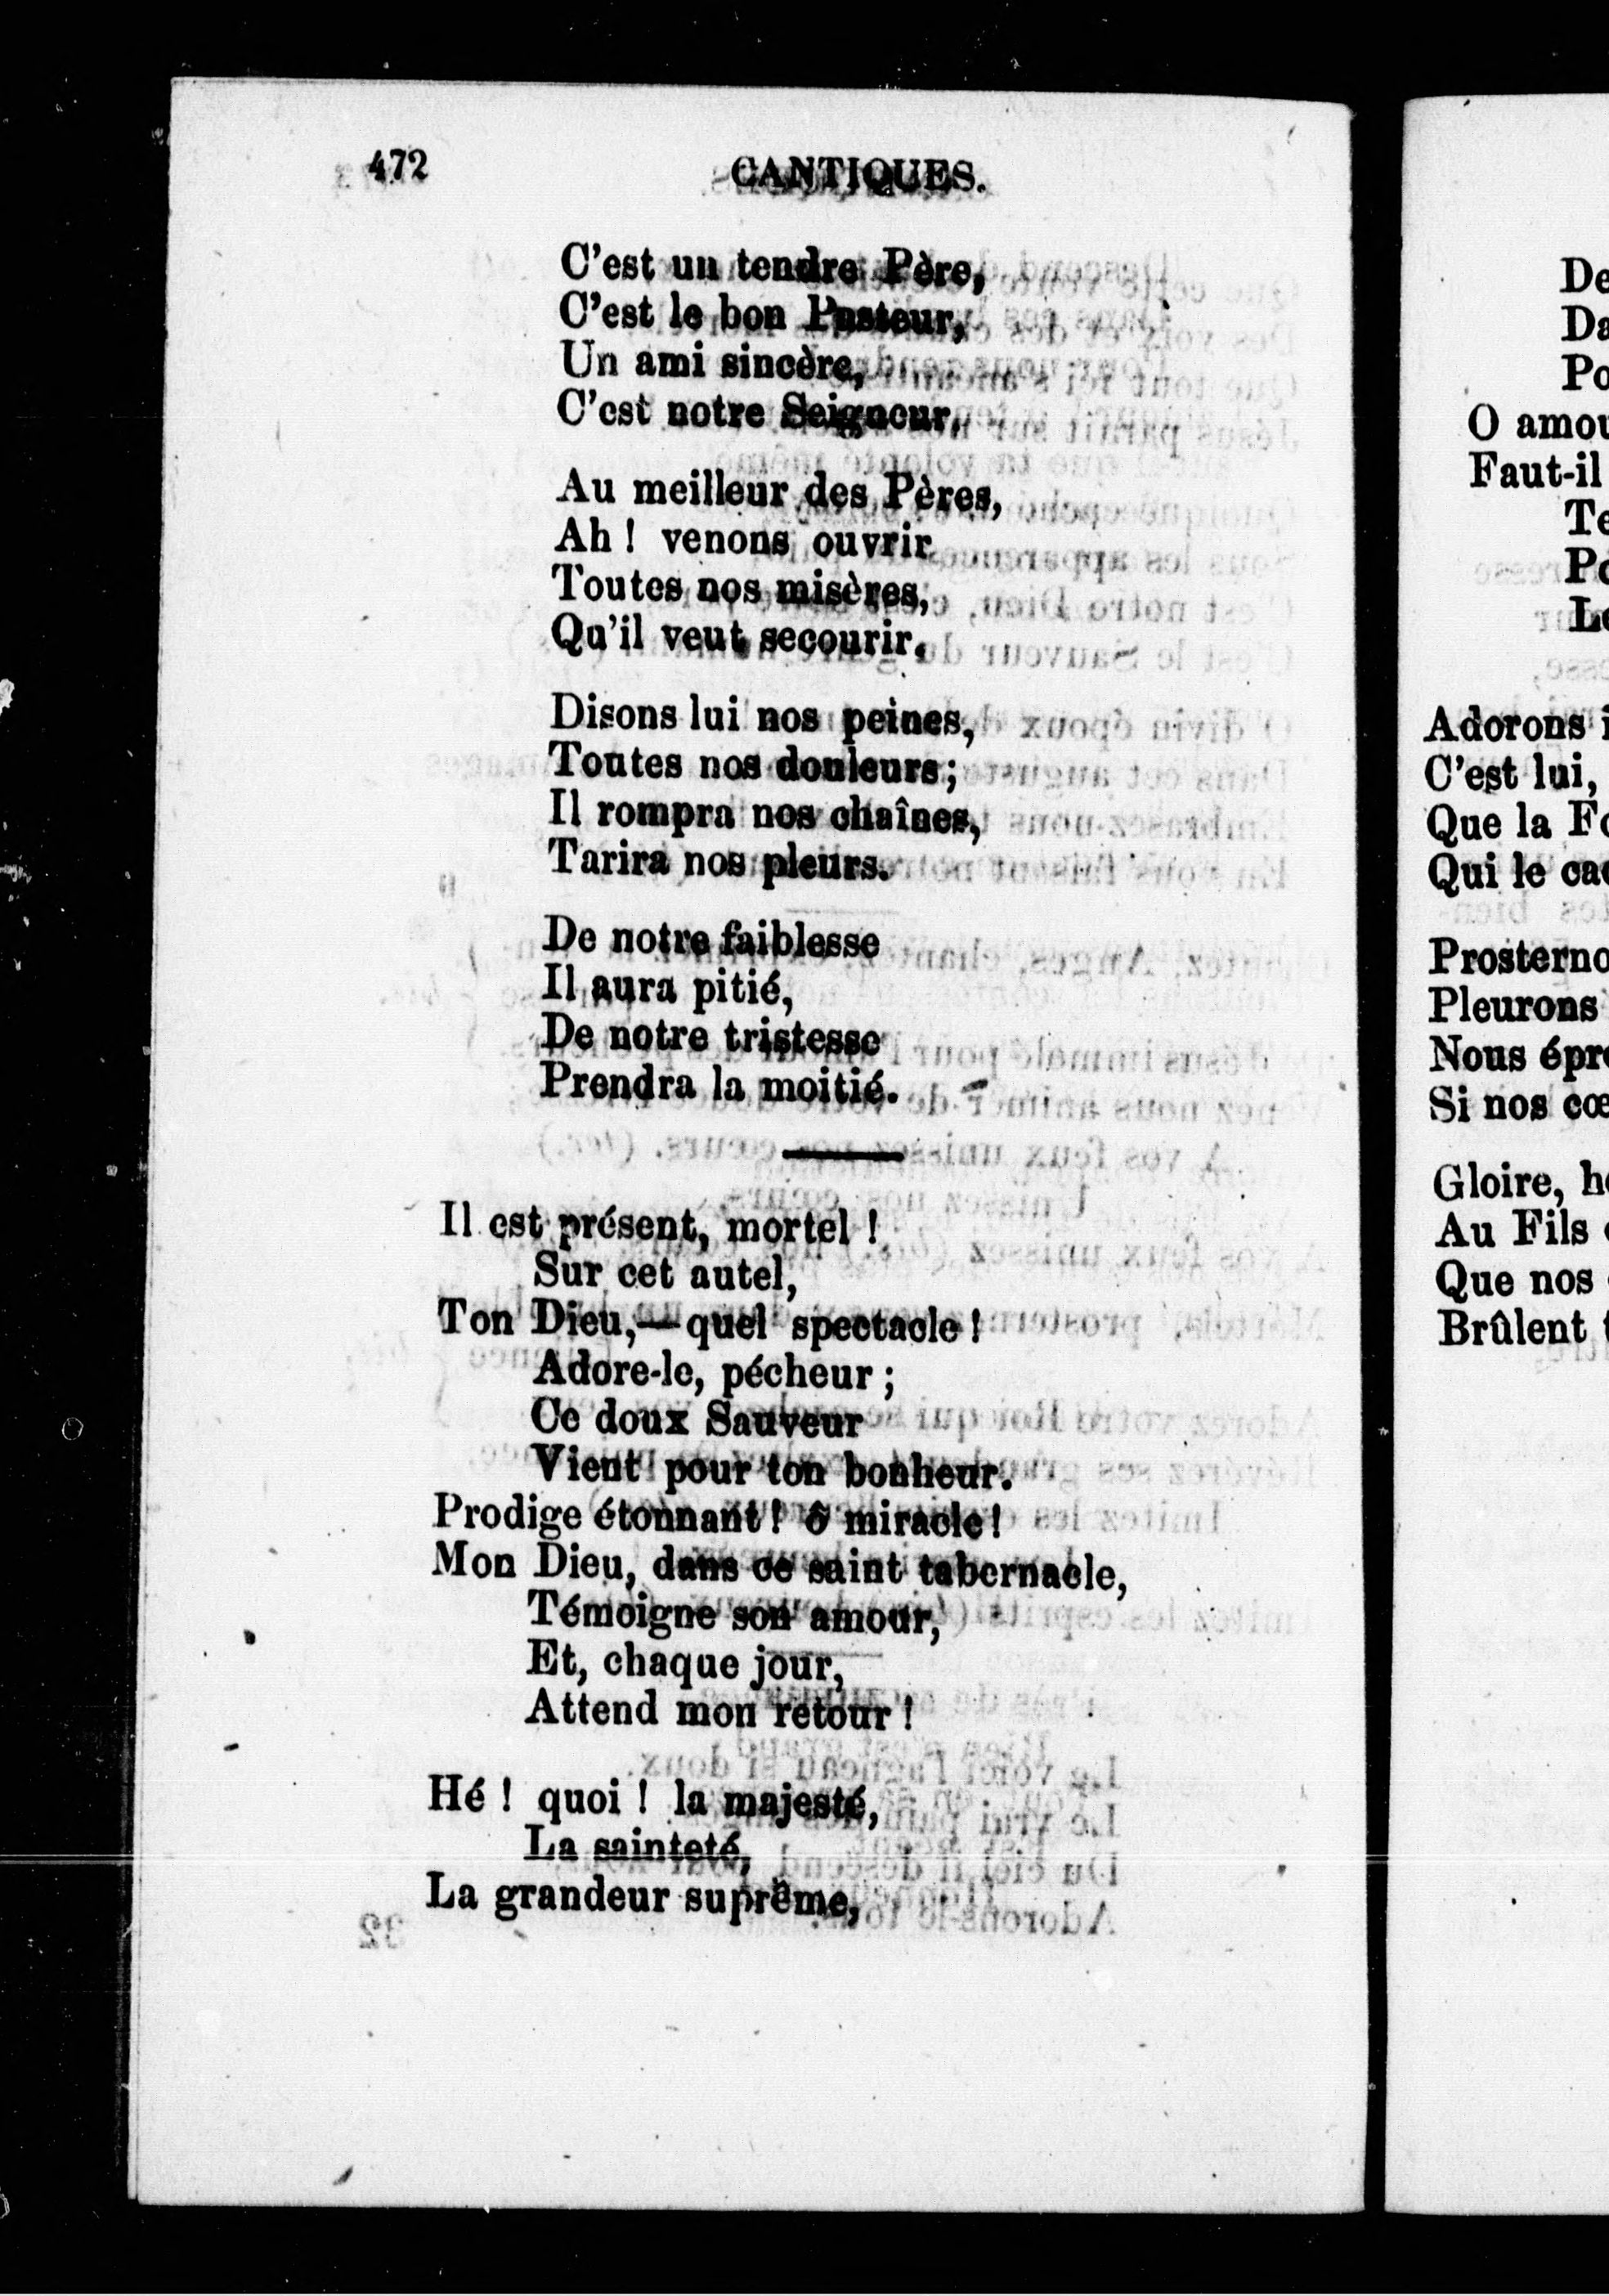 472
CANTIQUES.
C'est un tendre Père,
C'est le bon Pasteur,
Un ami sincère,
C'est notre Seigneur.
Au meilleur des Pères,
Ah ! venons ouvrir
Toutes nos misères,
Qu'il veut secourir.
Disons lui nos peines,
Toutes nos douleurs ;
Il rompra nos chaînes,
Tarira nos pleurs.
De notre faiblesse
Il aura pitié,
De notre tristesse
Prendra la moitié.
Il est présent, mortel !
Sur cet autel,
Ton Dieu,—quel spectacle !
Adore-le, pécheur ;
Ce doux Sauveur
Vient pour ton bonheur.
Prodige étonnant ! ô miracle !
Mon Dieu, dans ce saint tabernacle,
Témoigne son amour,
Et, chaque jour,
Attend mon retour !
Hé ! quoi ! la majesté,
La sainteté,
La grandeur suprême,
De
Da
Po
O amou
Faut-il
Te
Po
Le
Adorons i
C'est lui,
Que la Fo
Qui le cac
Prosterno
Pleurons
Nous épro
Si nos cœ
Gloire, ho
Au Fils
Que nos
Brûlent t